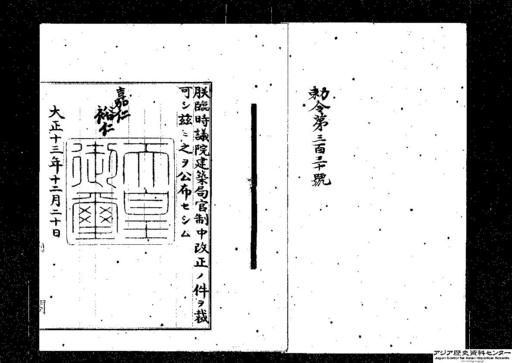 勅令第三百三十號
朕臨時議院建築局官制中改正ノ件ヲ裁
可シ茲ニ之ヲ公布セシム
嘉仁
裕仁
天皇
御璽
大正十三年十二月二十日
アジア歴史資料センター
Japan Center for Asian Historical Records